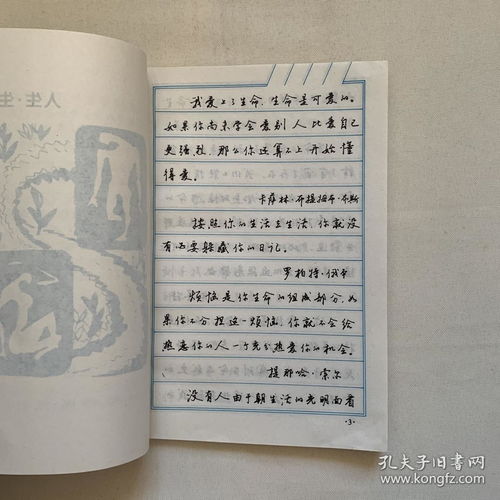 人生·生
我爱上了生命，生命是可爱的。
如果你尚未学会爱别人比爱自己
更强烈，那么你还算不上开始懂
得爱。
卡萨林·布提姆本·布斯
按照你的生活去生活，你就没
有必要躲藏你的日记。
罗柏特·伏本
烦恼是你生命的组成部分，如
果你不分担这一烦恼，你就不会给
热恋你的人一个充分热爱你的机会。
提那哈·索尔
没有人由于朝生活的光明面看
·3·
孔夫子旧书网
www.kongfz.com